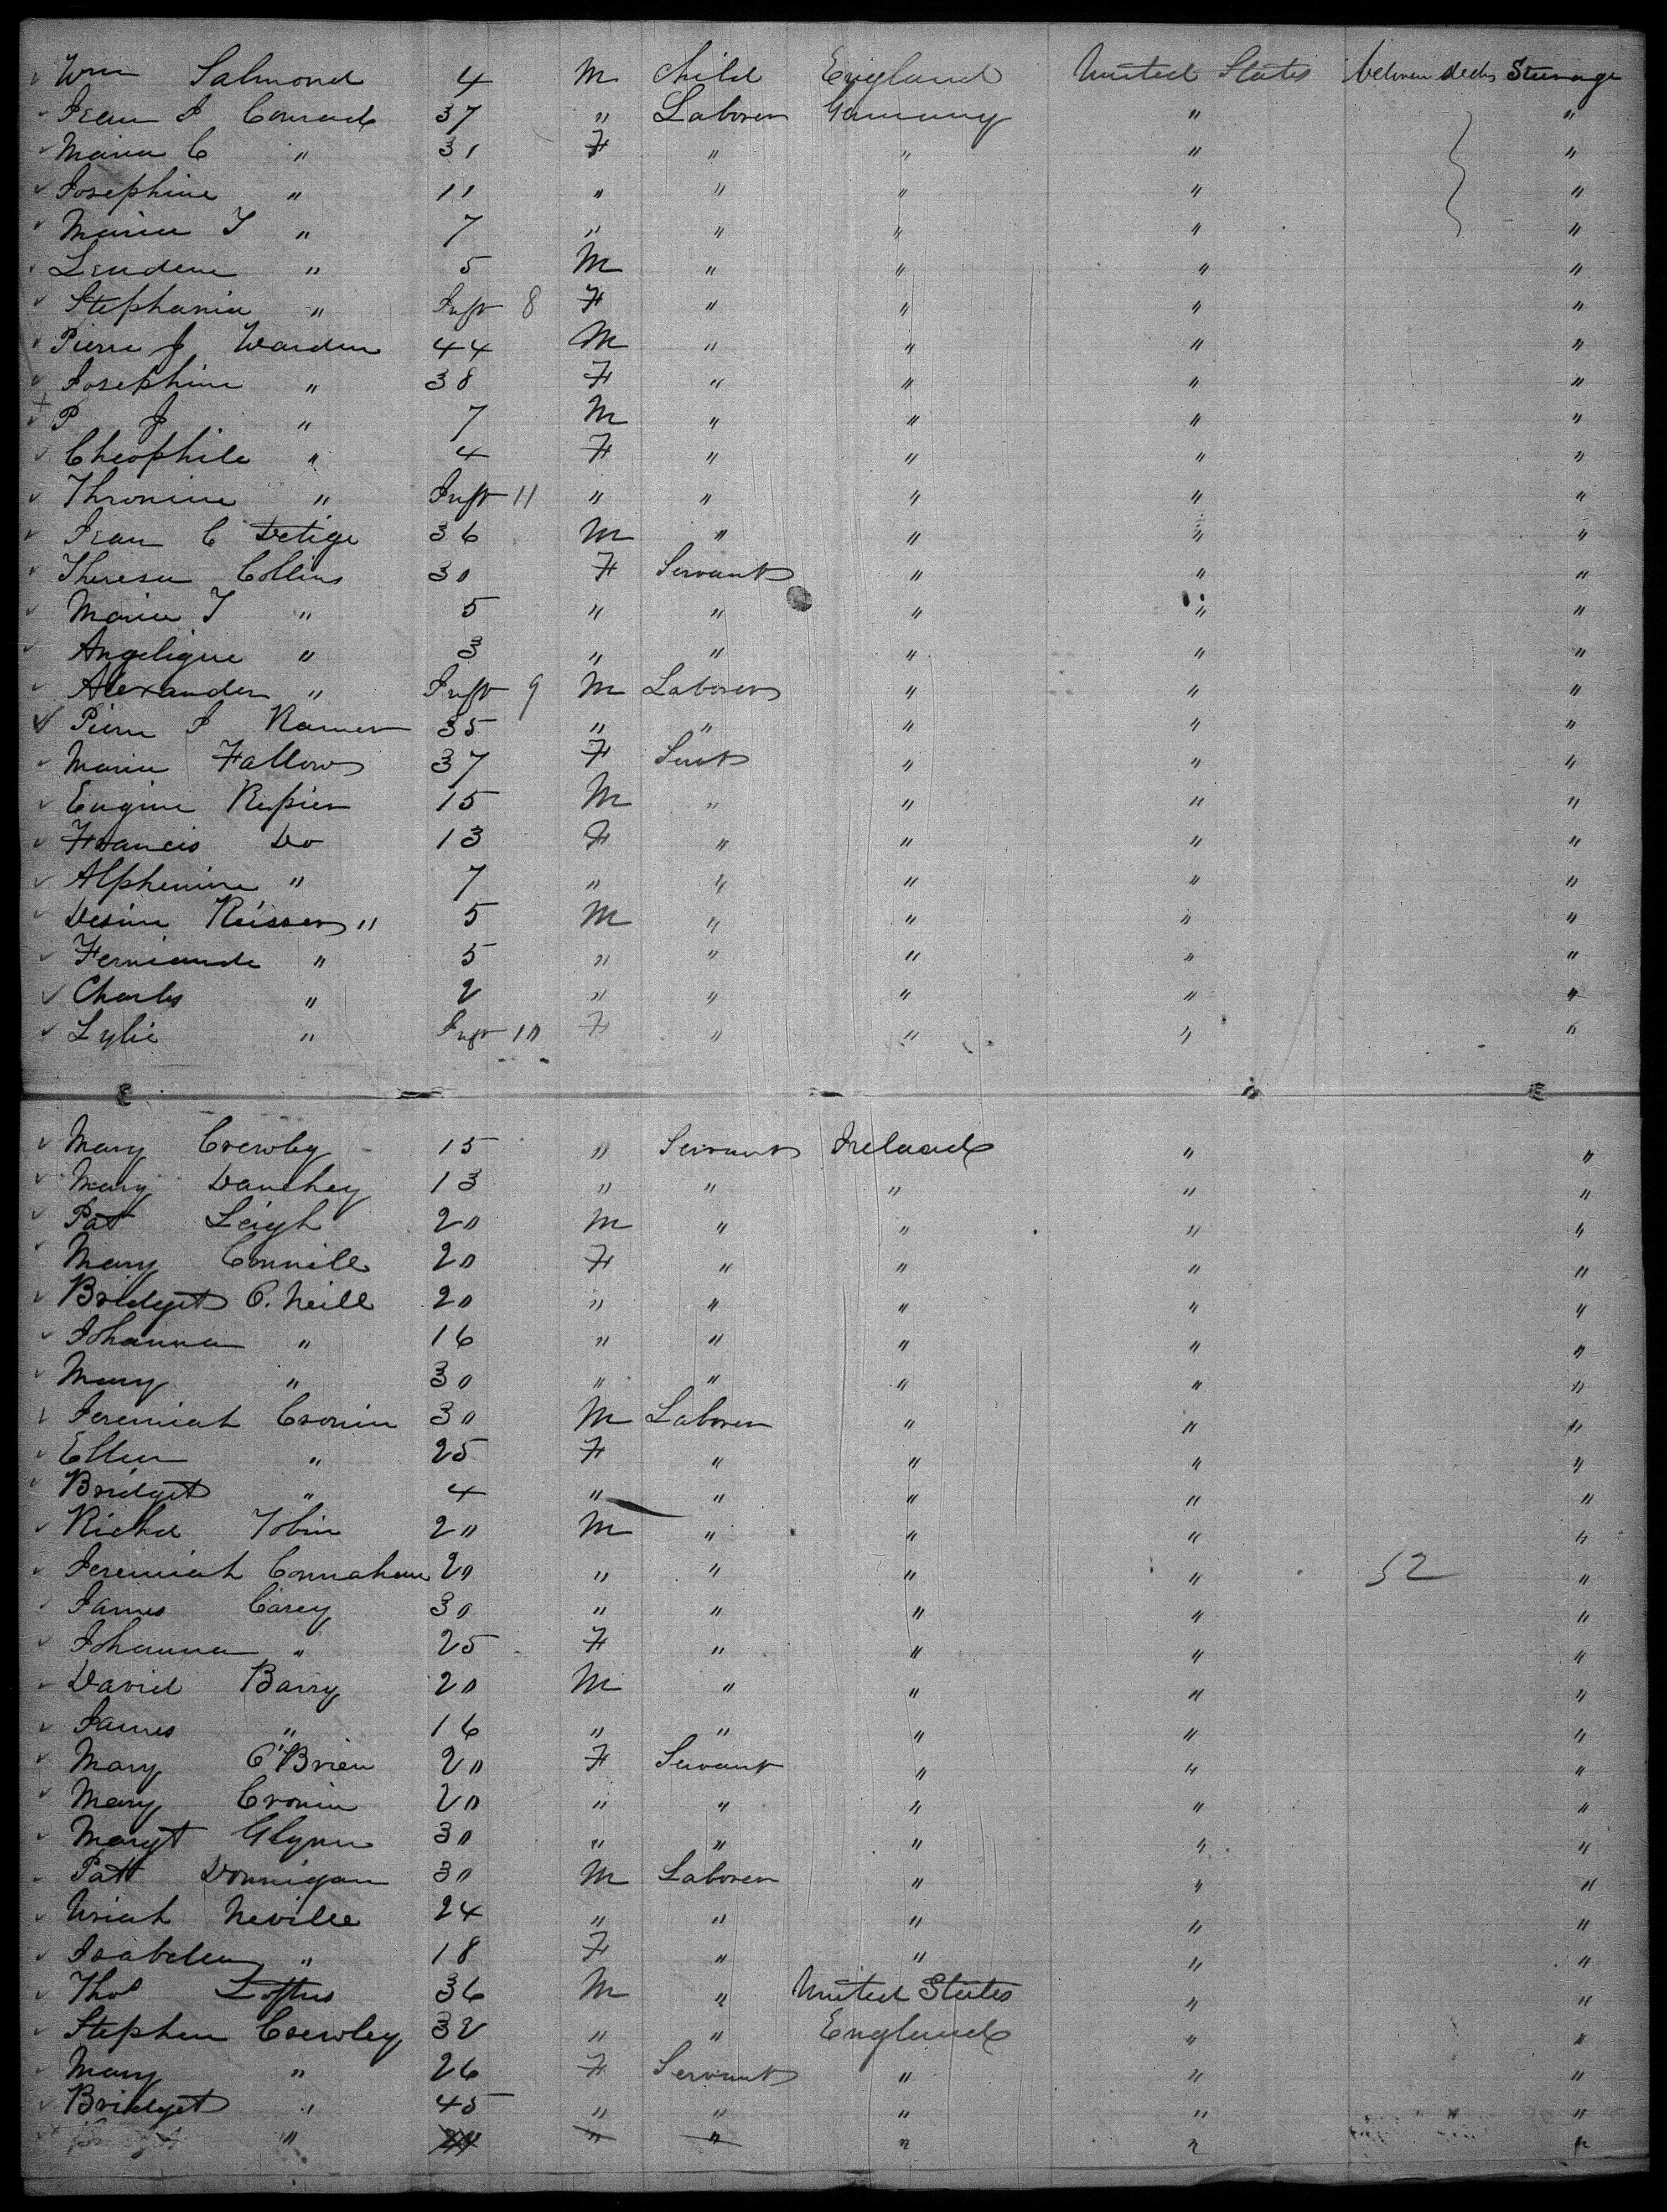 Wm Salmond 4 M Child England United States between decks Steerage
Jean J Conrad 37 " Laborer Germany " "
Maria C " 31 F " " " "
Josephine " 11 " " " " "
Maria T " 7 " " " " "
" 5 M " " " "
Stephania " Inft 8 F " " " "
Pierre J Warden 44 M " " " "
Josephine " 38 F " " " "
P J " 7 M " " " "
Cheophile " 4 F " " " "
Thronine " Inft 11 " " " " "
Jean C Detige 36 M " " " "
Theresa Collins 30 F Servant " " "
Maria T " 5 " " " " "
Angelique " 3 " " " " "
Alexander " Inft 9 M Laborer " " "
Pierre J 35 " " " " "
Maria Fallow 37 F Sert " " "
Eugine 15 M " " " "
Francis Do 13 F " " " "
Alphenine " 7 " " " " "
Desire " 5 M " " " "
" 5 " " " " "
Charles " 2 " " " " "
Lylie " Inft 10 F " " " "
Mary Crowley 15 " Servant Ireland " "
Mary 13 " " " " "
Pat Leigh 20 M " " " "
Mary Connill 20 F " " " "
Bridget O. Neill 20 " " " " "
Johanna " 16 " " " " "
Mary " 30 " " " " "
Jeremiah Cronin 30 M Laborer " " "
Ellen " 25 F " " " "
Bridget " 4 " " " " "
Richd Tobin 20 M " " " "
Jeremiah 20 " " " " 52 "
James Carey 30 " " " " "
Johanna " 25 F " " " "
David Barry 20 M " " " "
James " 16 " " " " "
Mary O'Brien 20 F Servant " " "
Mary Cronin 20 " " " " "
Margt Glynn 30 " " " " "
Patt Donnigan 30 M Laborer " " "
Uriah Neville 24 " " " " "
Isabella " 18 F " " " "
Thos Loftus 36 M " United States " "
Stephen Crowley 32 " " England " "
Mary " 26 F Servant " " "
Bridget " 45 " " " " "
" " " " " "